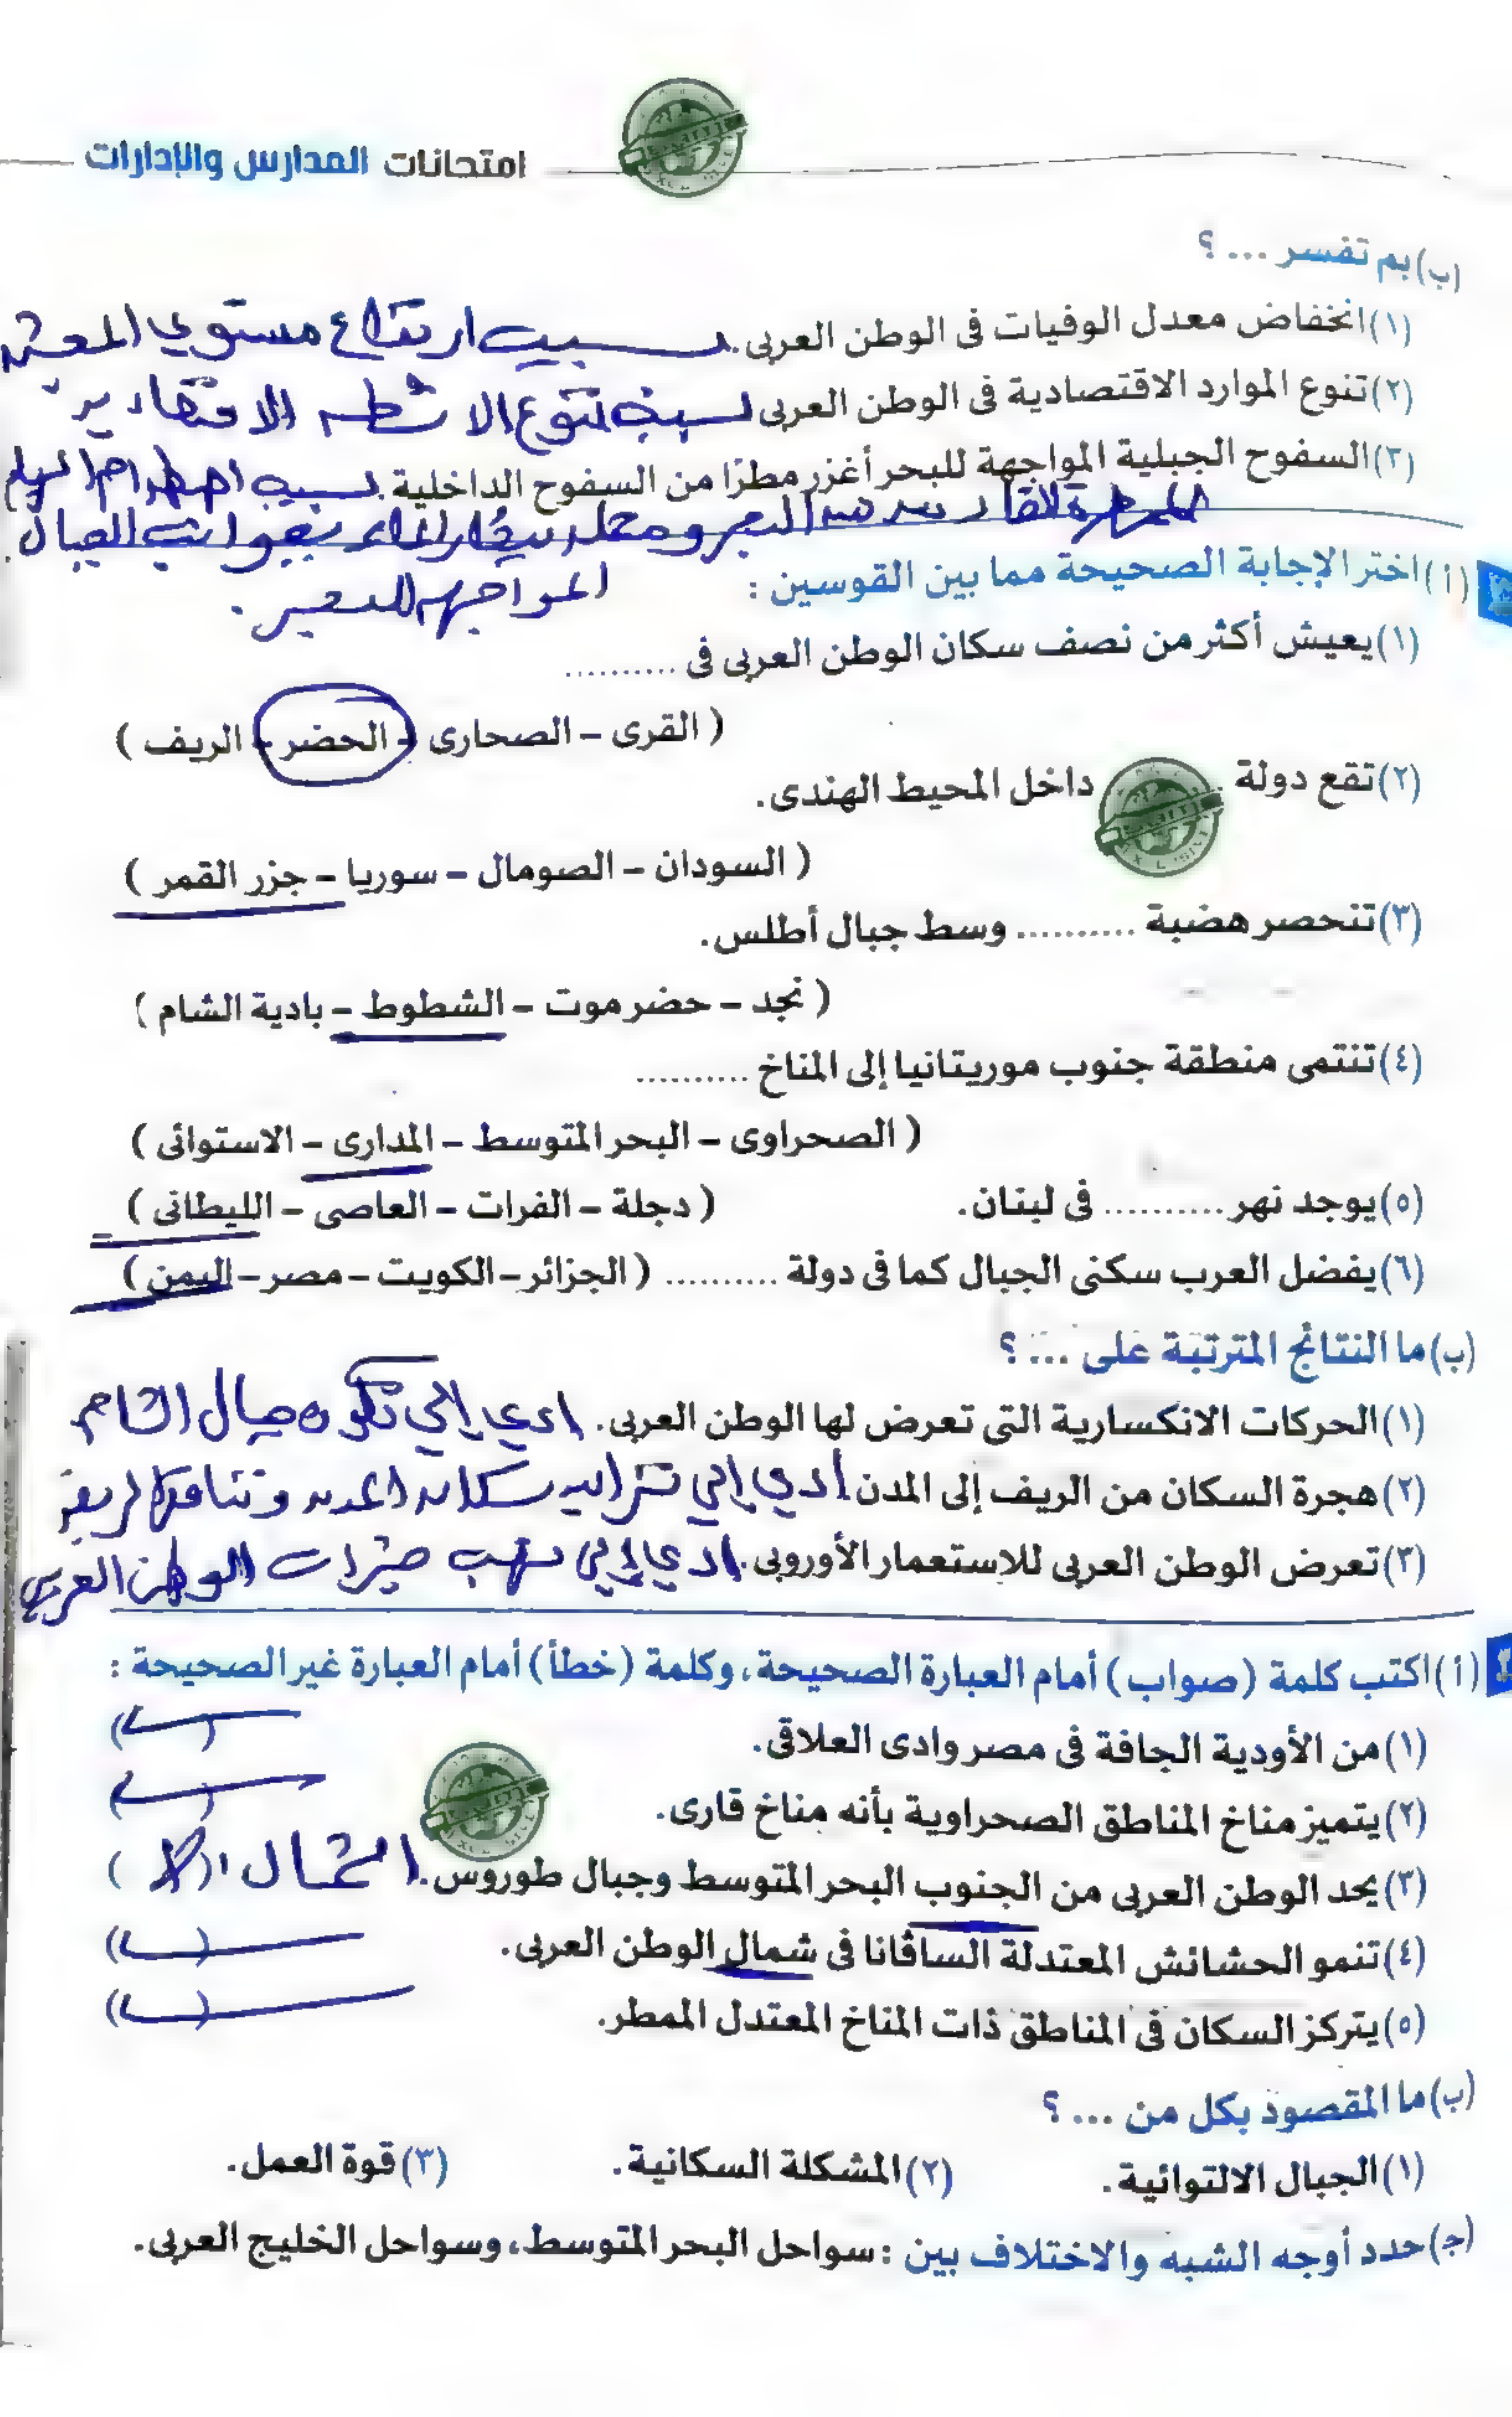 امتحانات المدارس والإدارات
(ب) بم تفسر ... ؟
(١) انخفاض معدل الوفيات فى الوطن العربى. بسبب ارتفاع مستوي المعيشة
(٢) تنوع الموارد الاقتصادية فى الوطن العربى بسبب تنوع الانشطة الاقتصادية
(٣) السفوح الجبلية المواجهة للبحر أغزر مطرًا من السفوح الداخلية. بسبب اصطدام الرياح
الممطرة القادمة من البحر ومحملة ببخار الماء بجوانب الجبال
المواجهة للبحر.
(أ) اختر الإجابة الصحيحة مما بين القوسين :
(١) يعيش أكثر من نصف سكان الوطن العربى فى ..........
( القرى – الصحارى – الحضر – الريف )
(٢) تقع دولة داخل المحيط الهندى.
( السودان – الصومال – سوريا – جزر القمر )
(٣) تنحصر هضبة .......... وسط جبال أطلس.
( نجد – حضرموت – الشطوط – بادية الشام )
(٤) تنتمى منطقة جنوب موريتانيا إلى المناخ ..........
( الصحراوى – البحر المتوسط – المدارى – الاستوائى )
(٥) يوجد نهر .......... فى لبنان. ( دجلة – الفرات – العاصى – الليطانى )
(٦) يفضل العرب سكنى الجبال كما فى دولة .......... ( الجزائر – الكويت – مصر – اليمن )
(ب) ما النتائج المترتبة على ... ؟
(١) الحركات الانكسارية التى تعرض لها الوطن العربى. ادي إلي تكون جبال الشام
(٢) هجرة السكان من الريف إلى المدن. أدي إلي تزايد سكان المدن وتناقص الريف
(٣) تعرض الوطن العربى للاستعمار الأوروبى. ادي إلي نهب خيرات الوطن العربي
(أ) اكتب كلمة (صواب) أمام العبارة الصحيحة، وكلمة (خطأ) أمام العبارة غير الصحيحة :
(١) من الأودية الجافة فى مصر وادى العلاقى. ( )
(٢) يتميز مناخ المناطق الصحراوية بأنه مناخ قارى. ( )
(٣) يحد الوطن العربى من الجنوب البحر المتوسط وجبال طوروس. الشمال ( )
(٤) تنمو الحشائش المعتدلة السافانا فى شمال الوطن العربى. ( )
(٥) يتركز السكان فى المناطق ذات المناخ المعتدل الممطر. ( )
(ب) ما المقصود بكل من ... ؟
(١) الجبال الالتوائية. (٢) المشكلة السكانية. (٣) قوة العمل.
(ج) حدد أوجه الشبه والاختلاف بين : سواحل البحر المتوسط، وسواحل الخليج العربى.